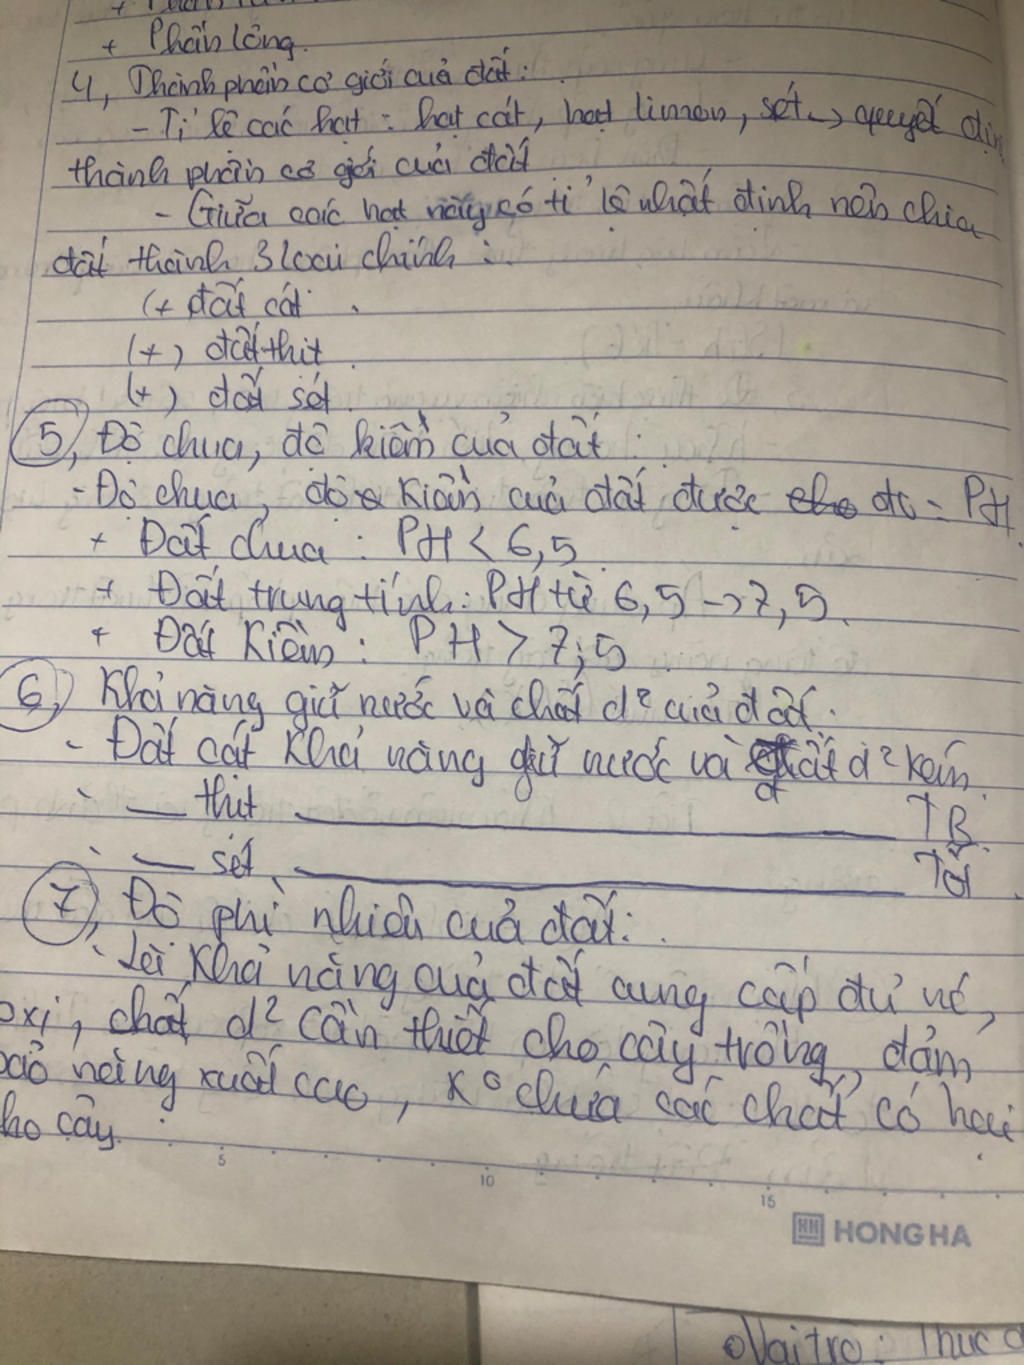 + Phần lỏng.
4, Thành phần cơ giới của đất:
- Tỉ lệ các hạt: hạt cát, hạt limon, sét -> quyết địn
thành phần cơ giới của đất
- Giữa các hạt này có tỉ lệ nhất định nên chia
đất thành 3 loại chính:
(+ đất cát.
(+) đất thịt
(+) đất sét.
5, Độ chua, độ kiềm của đất:
- Độ chua, độ kiềm của đất được đo = PH.
+ Đất chua: PH < 6,5
+ Đất trung tính: PH từ 6,5 -> 7,5.
+ Đất Kiềm: PH > 7,5
6, Khả năng giữ nước và chất d² của đất.
- Đất cát khả năng giữ nước và chất d² kém.
- — thịt ——— TB.
- — sét ——— Tốt.
7, Độ phì nhiêu của đất:
- Là khả năng của đất cung cấp đủ nc,
oxi, chất d² cần thiết cho cây trồng, đảm
bảo năng xuất cao, K° chứa các chất có hại
ho cây.
5 10 15
HH HONG HA
Vai trò: Thức